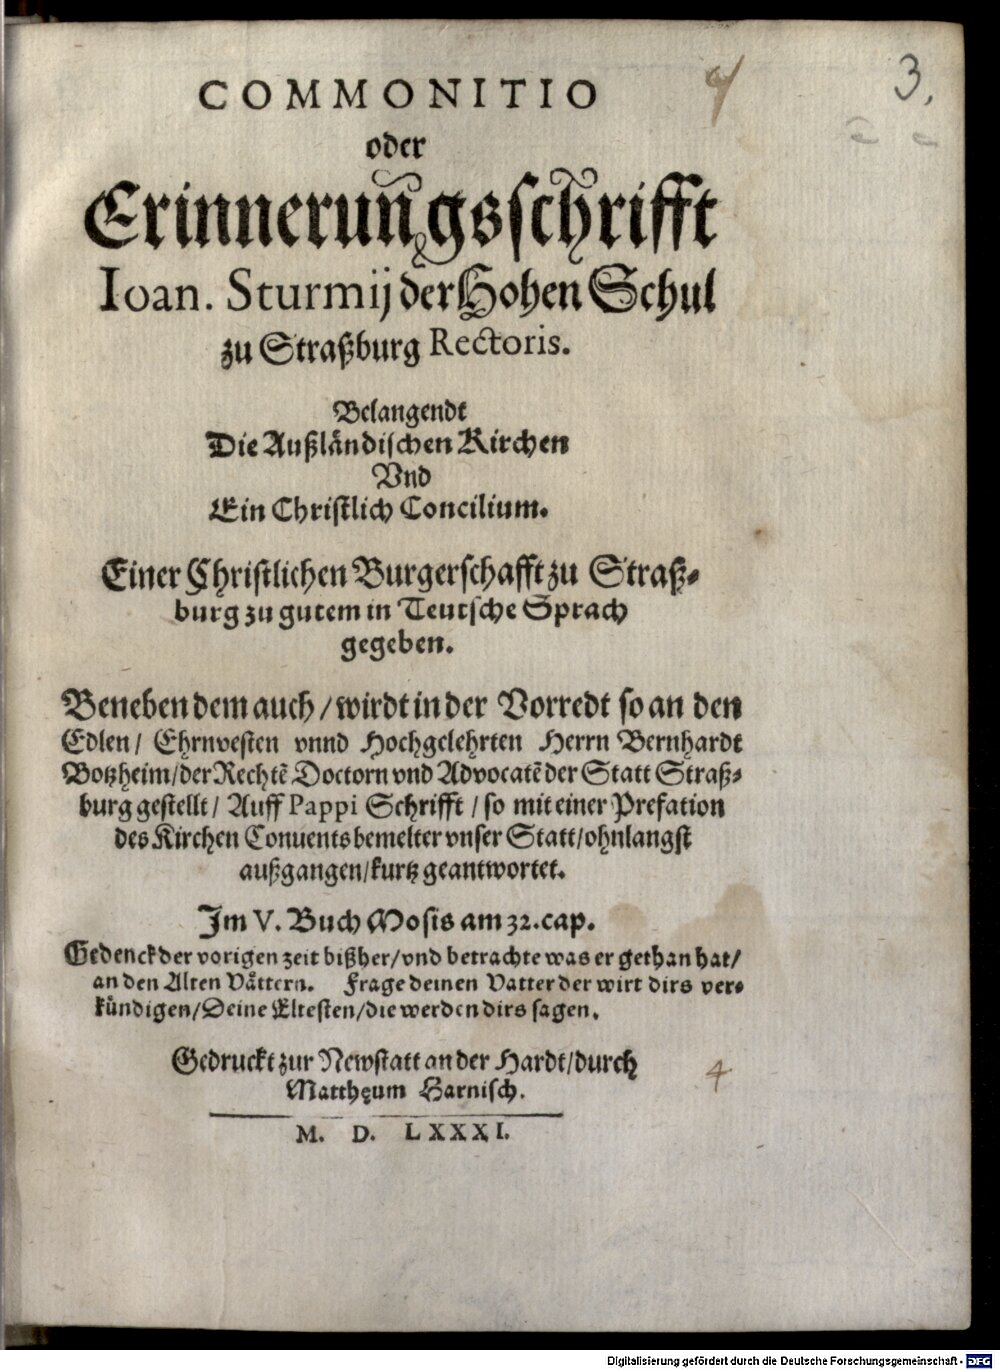 COMMONITIO
4
3.
oder
Erinnerungsschrifft
Ioan. Sturmij der Hohen Schul
zu Straßburg Rectoris.
Belangendt
Die Außländischen Kirchen
Vnd
Ein Christlich Concilium.
Einer Christlichen Burgerschafft zu Straß⸗
burg zu gutem in Teutsche Sprach
gegeben.
Beneben dem auch / wirdt in der Vorredt so an den
Edlen / Ehrnvesten vnnd Hochgelehrten Herrn Bernhardt
Botzheim / der Rechtẽ Doctorn vnd Advocatẽ der Statt Straß⸗
burg gestellt / Auff Pappi Schrifft / so mit einer Prefation
des Kirchen Conuents bemelter vnser Statt / ohnlangst
außgangen / kurtz geantwortet.
Im V. Buch Mosis am 32. cap.
Gedenck der vorigen zeit bißher / vnd betrachte was er gethan hat /
an den Alten Vättern. Frage deinen Vatter der wirt dirs ver⸗
kündigen / Deine Eltesten / die werden dirs sagen.
Gedruckt zur Newstatt an der Hardt / durch
Matthęum Harnisch.
4
M. D. LXXXI.
Digitalisierung gefördert durch die Deutsche Forschungsgemeinschaft - DFG